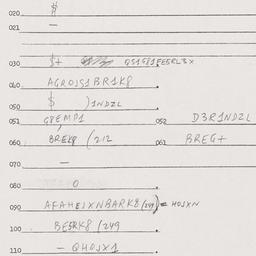 020 $
021 —
030 $+ QS1G81FESRL3X
040 AGROJS1BR1K8
050 $ )1NDZL
051 G8EMP1 052 D3R1NDZL
060 BREK8 (212 061 BREG+
070 —
080 0
090 AFAHEJXNBARK8(249)= HOJXN
100 BESRK8 (249
110 — QHOJX1